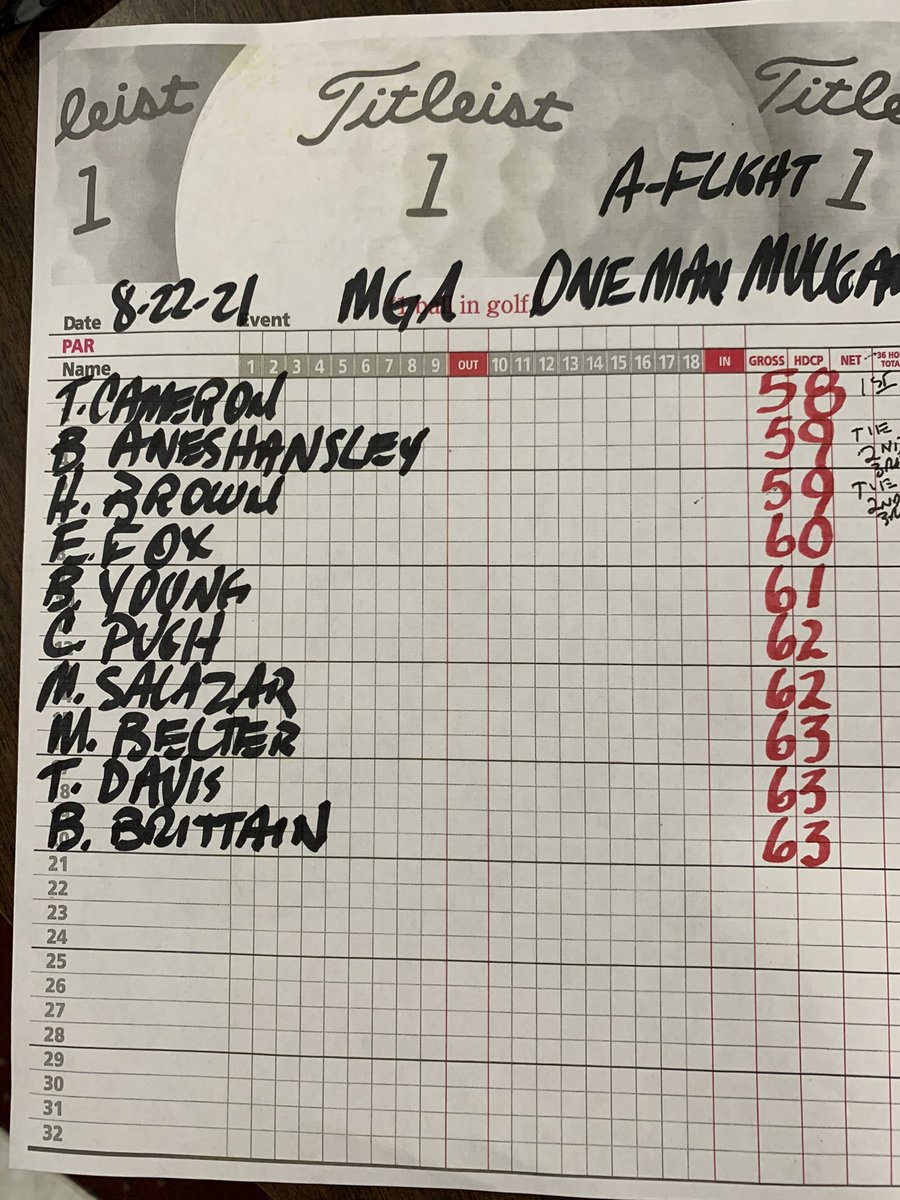 leist Titleist Title
1 1 A-FLIGHT 1
Date 8-22-21 Event MGA ball in golf. ONE MAN MULLIGAN
PAR
Name 1 2 3 4 5 6 7 8 9 OUT 10 11 12 13 14 15 16 17 18 IN GROSS HDCP NET 36 HO
TOTA
T. CAMERON 58 1ST
B. ANESHANSLEY 59 TIE 2ND 3RD
H. BROWN 59 TIE 2ND 3RD
E. FOX 60
B. YOUNG 61
C. PUGH 62
M. SALAZAR 62
M. BELTER 63
T. DAVIS 63
B. BRITTAIN 63
21
22
23
24
25
26
27
28
29
30
31
32